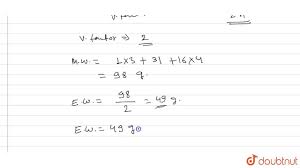 V. factor ⇒ 2
M.W. = 1×3 + 31 + 16×4
= 98 g.
E.W. = 98/2 = 49 g.
E.W. = 49 g
doubtnut